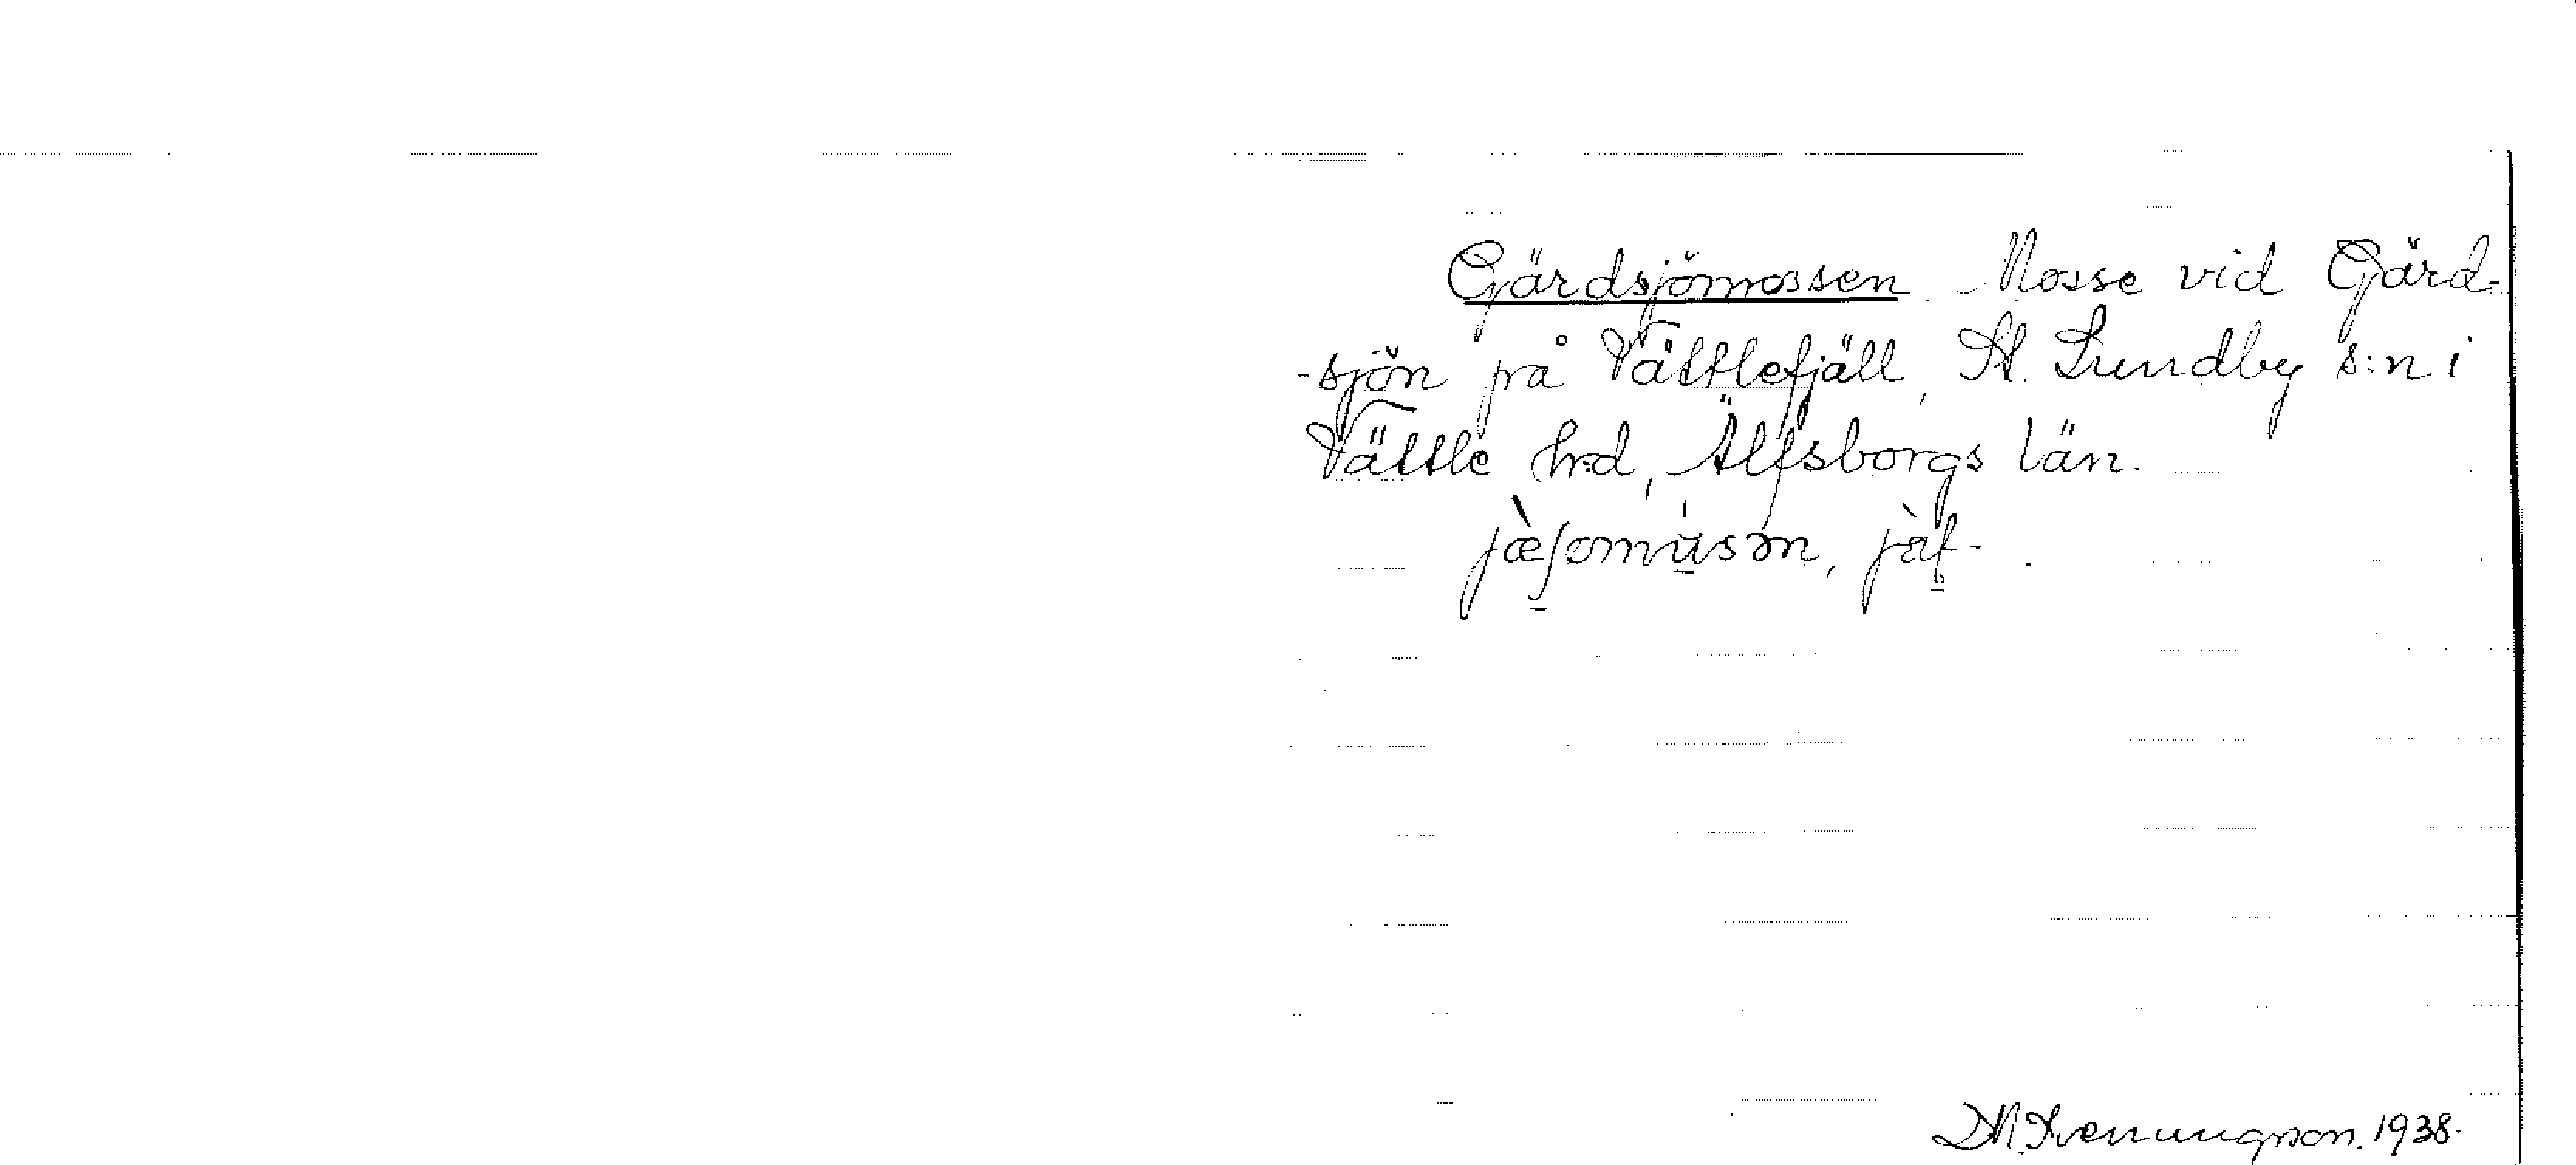 Gärdsjömossen. Mosse vid Gärd-
-sjön på Vättlefjäll, St. Lundby s:n i
Vättle hd, Älfsborgs län.
D.M. Svenungsson. 1938.